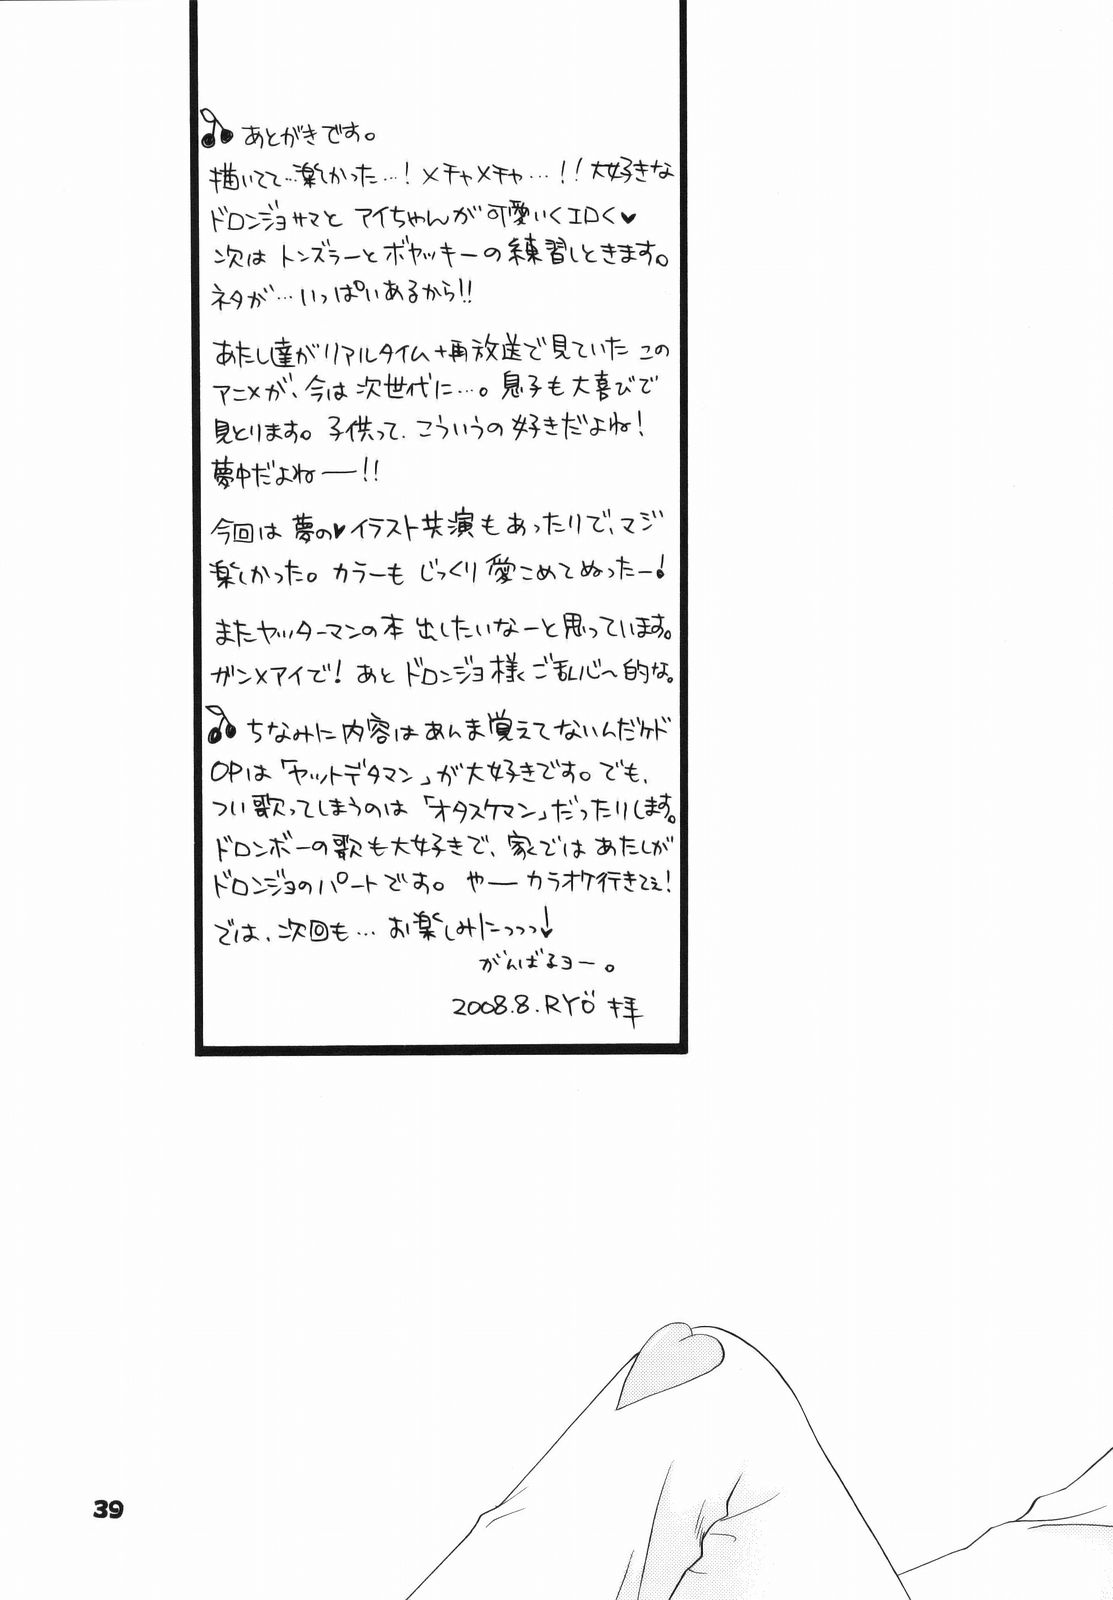 あとがきです。
描いてて…楽しかった…！メチャメチャ…！！大好きな
ドロンジョサマと アイちゃんが可愛いくエロく♥
次は トンズラーとボヤッキーの練習しときます。
ネタが…いっぱいあるから!!
あたし達がリアルタイム+再放送で見ていた この
アニメが、今は 次世代に…。息子も大喜びで
見とります。子供って、こういうの好きだよね！
夢中だよねー!!
今回は 夢の♥イラスト共演もあったりで、マジ
楽しかった。カラーも じっくり愛こめてぬったー！
またヤッターマンの本 出したいなーと思っています。
ガン×アイで！あと ドロンジョ様ご乱心〜的な。
ちなみに内容はあんま覚えてないんだケド
OPは「ヤットデタマン」が大好きです。でも、
つい歌ってしまうのは「オタスケマン」だったりします。
ドロンボーの歌も大好きで、家ではあたしが
ドロンジョのパートです。やー カラオケ行きてぇ！
では、次回も…お楽しみにっっっ！
がんばるヨー。
2008.8.RYÖ 拝
39